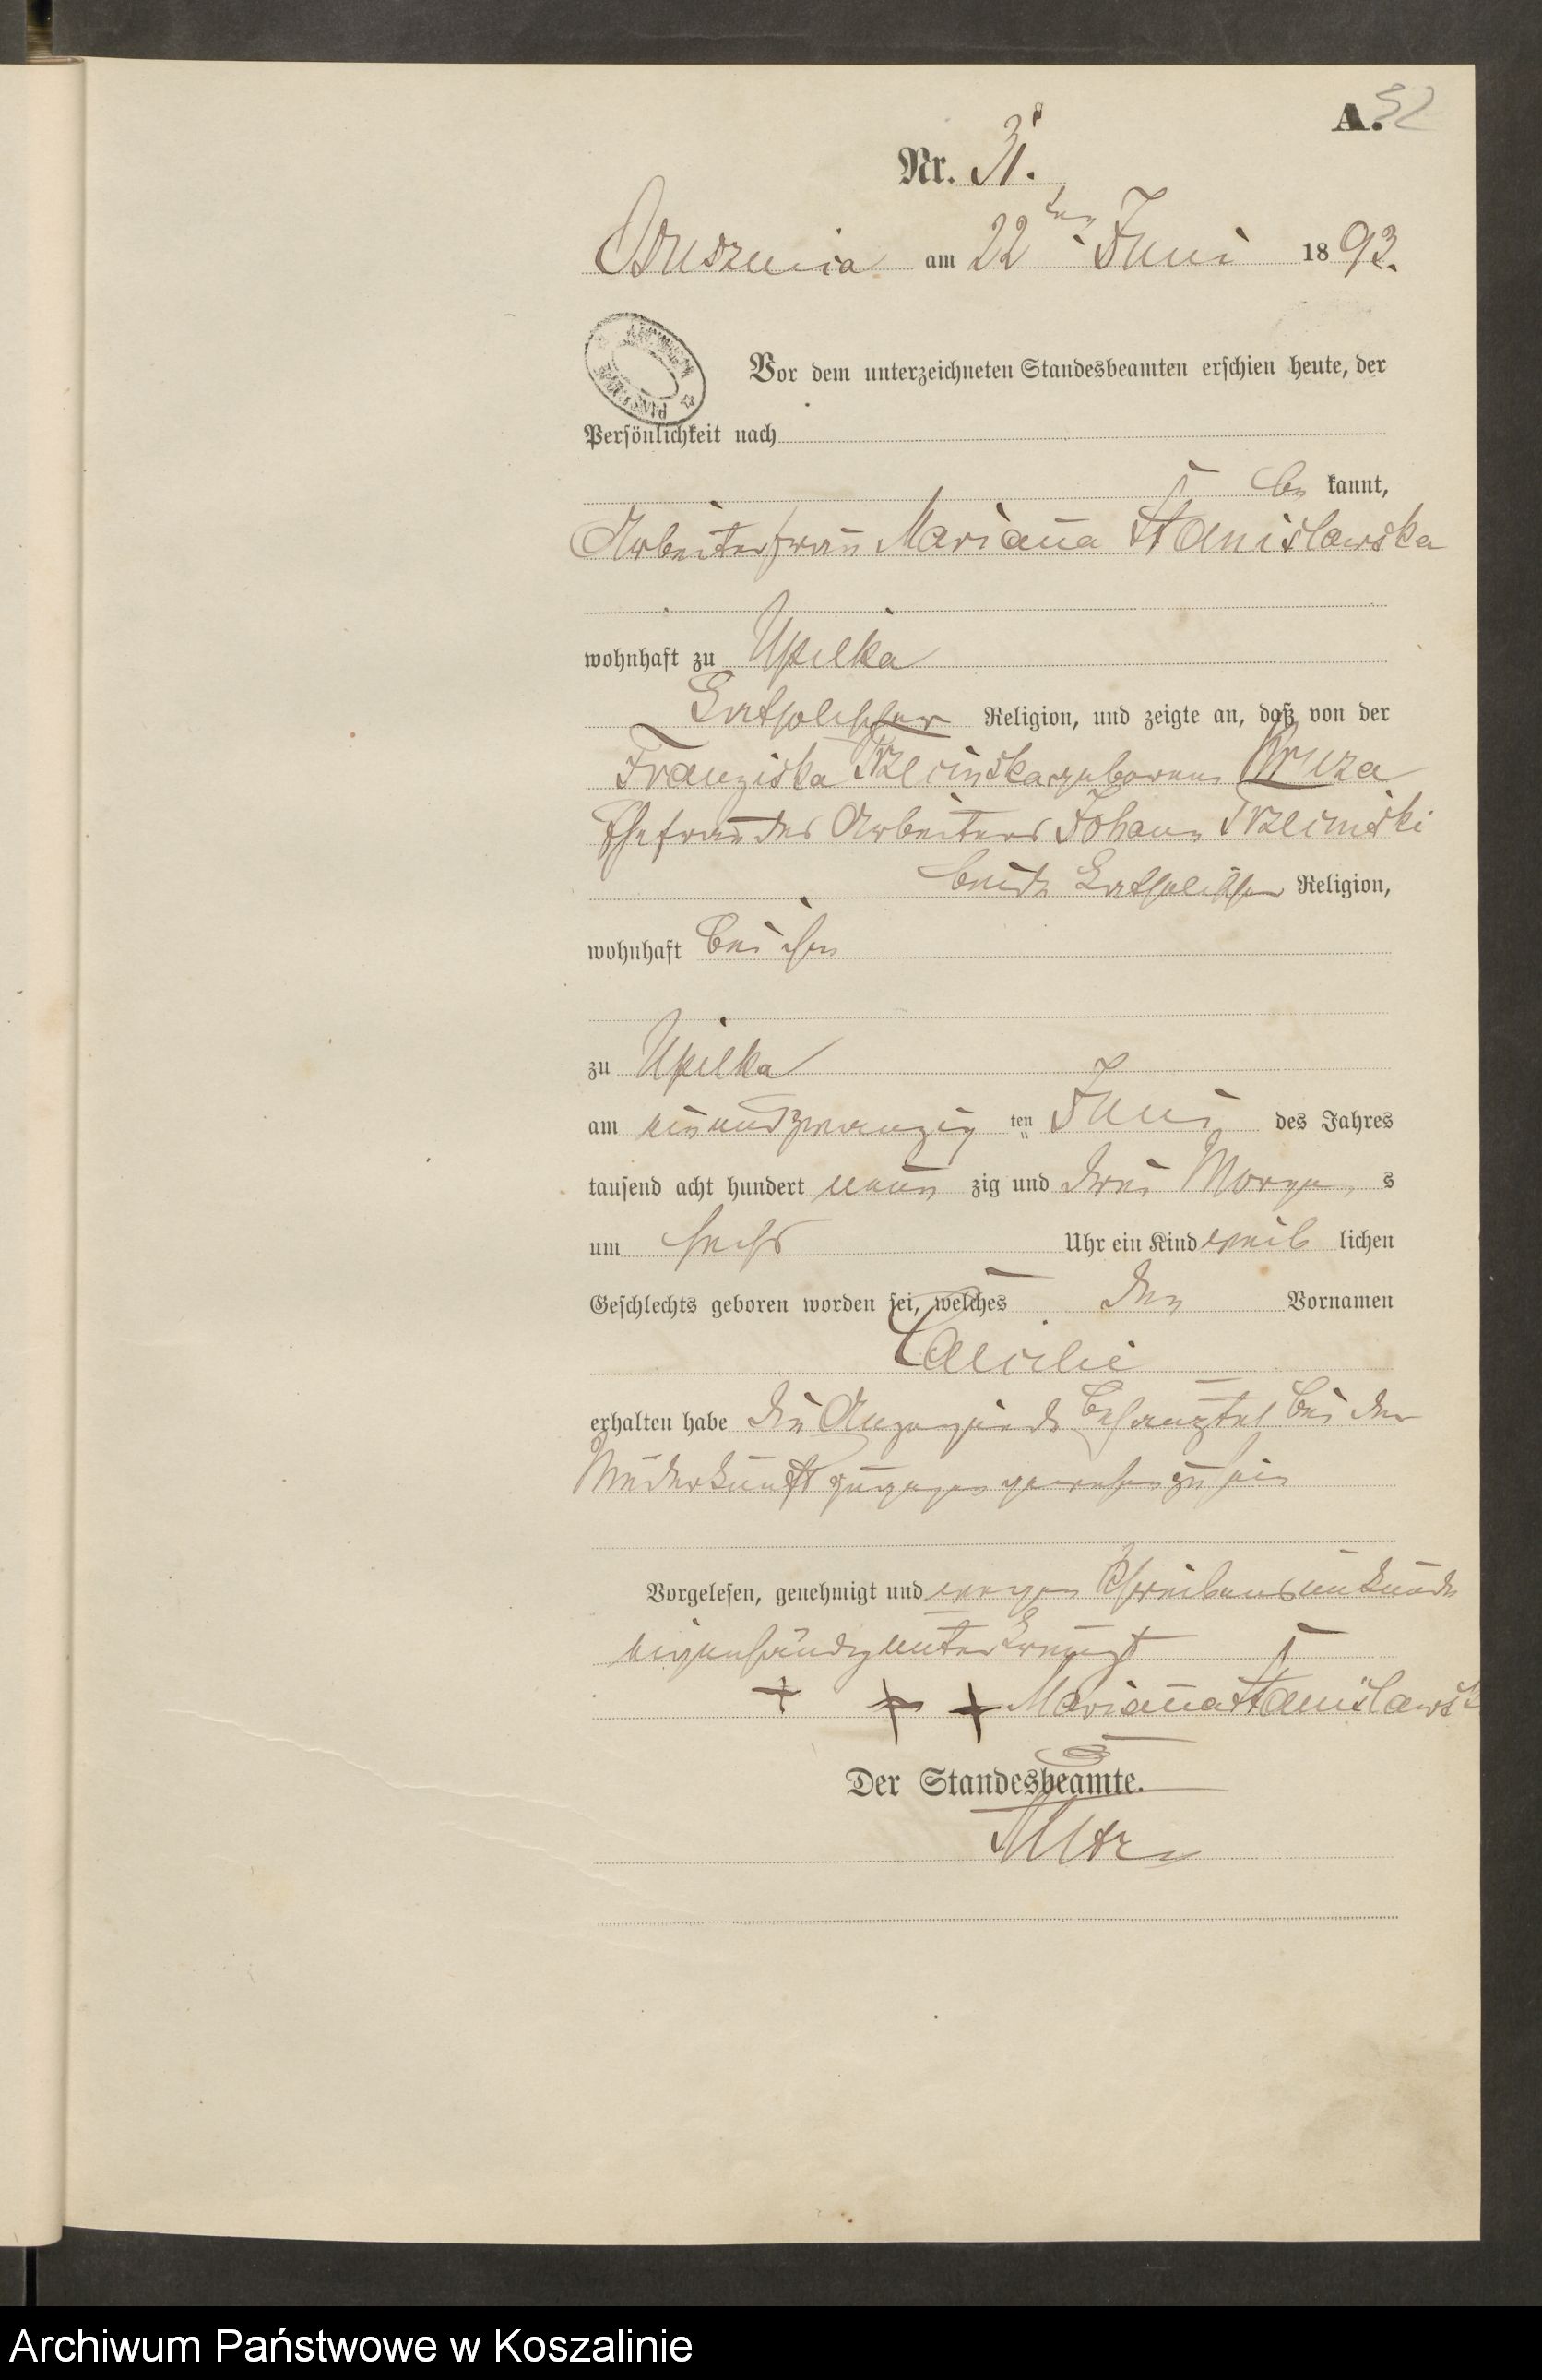 A. 32
Nr. 31.
Osuszenica am 22ten Juni 1893.
Vor dem unterzeichneten Standesbeamten erschien heute, der
Persönlichkeit nach
be kannt,
Arbeiterfrau Mariana Stanislawska
wohnhaft zu Upilka
katholischer Religion, und zeigte an, daß von der
Franziska geborene
Ehefrau des Arbeiters Johann
beide katholischer Religion,
wohnhaft bei ihm
zu Upilka
am einundzwanzig ten Juni des Jahres
tausend acht hundert neun zig und drei Morgen s
um sechs Uhr ein Kind weib lichen
Geschlechts geboren worden sei, welches den Vornamen
Cäcilie
erhalten habe die Anzeigende bei der
Niederkunft zugegen gewesen zu sein
Vorgelesen, genehmigt und wegen Schreibensunkunde
eigenhändig unterkreuzt
+ + + Mariana Stanislawsk
Der Standesbeamte.
Archiwum Państwowe w Koszalinie